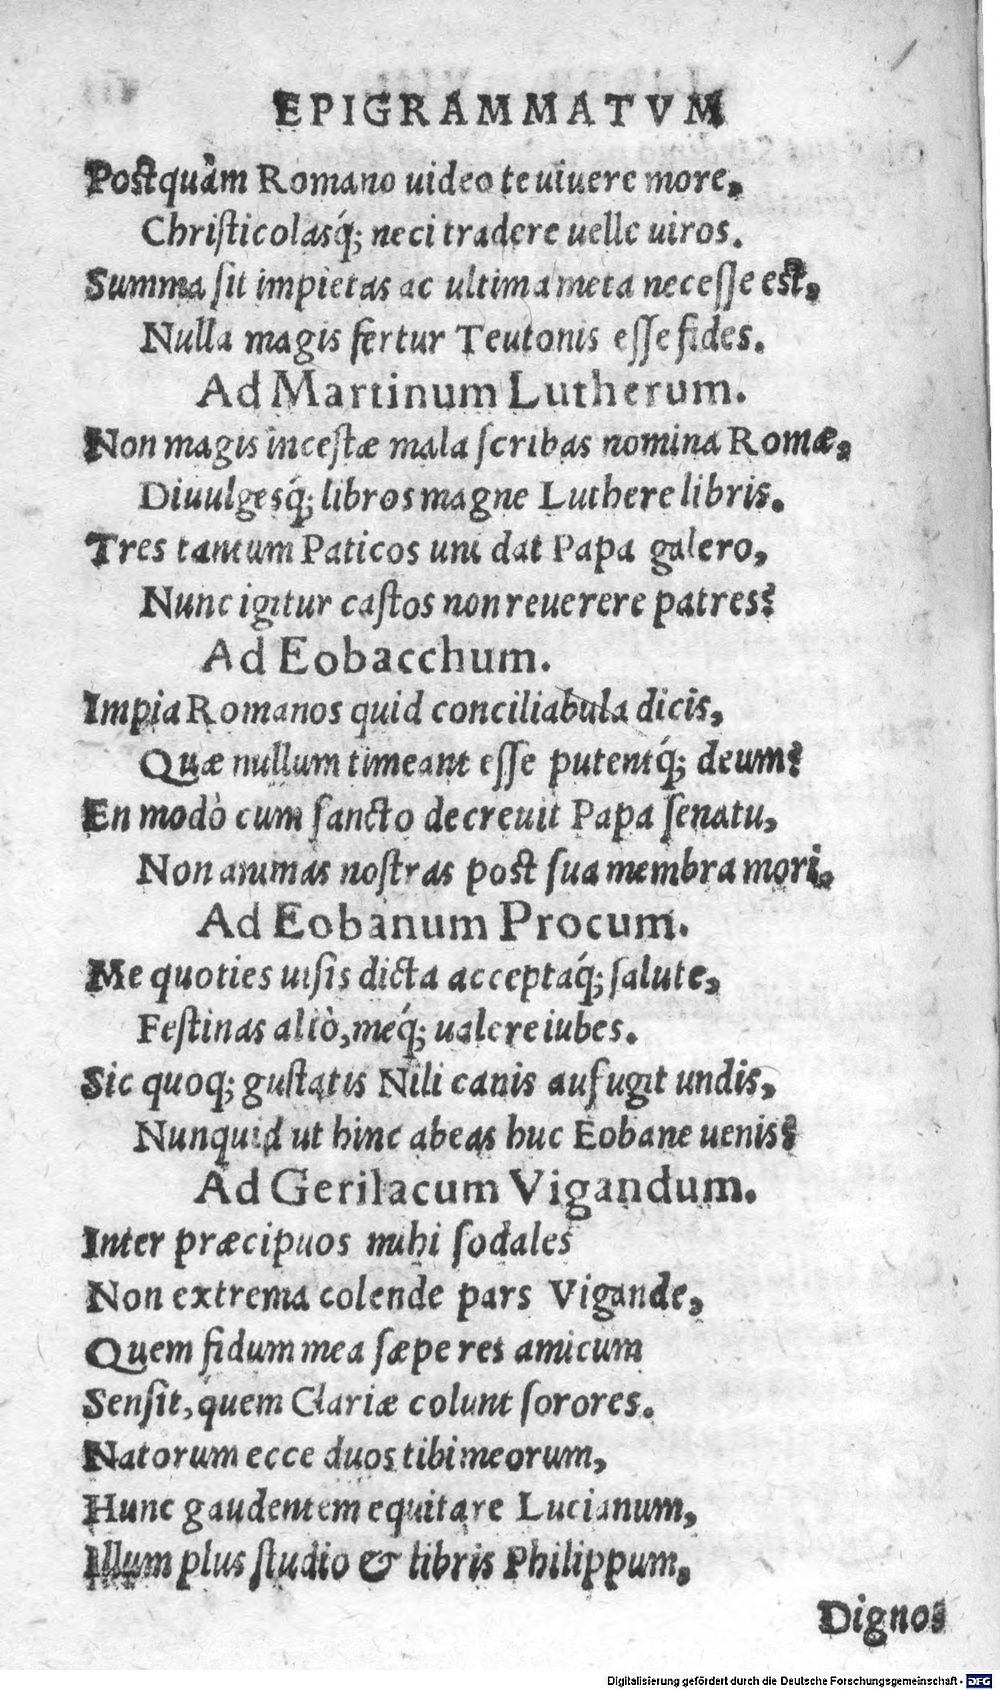 EPIGRAMMATVM
Postquàm Romano uideo te uiuere more,
Chriſticolasq́; neci tradere uelle uiros.
Summa ſit impietas ac ultima meta neceſſe est,
Nulla magis fertur Teutonis eſſe fides.
Ad Martinum Lutherum.
Non magis inceſtæ mala ſcribas nomina Romæ,
Diuulgesq́; libros magne Luthere libris.
Tres tantum Paticos uni dat Papa galero,
Nunc igitur caſtos non reuerere patres?
Ad Eobacchum.
Impia Romanos quid conciliabula dicis,
Quæ nullum timeant eſſe putentq́; deum?
En modò cum ſancto decreuit Papa ſenatu,
Non animas noſtras post ſua membra mori.
Ad Eobanum Procum.
Me quoties uiſis dicta acceptaq́; ſalute,
Feſtinas aliò, meq́; ualere iubes.
Sic quoq; guſtatis Nili canis aufugit undis,
Nunquid ut hinc abeas huc Eobane uenis?
Ad Gerilacum Vigandum.
Inter præcipuos mihi ſodales
Non extrema colende pars Vigande,
Quem fidum mea ſæpe res amicum
Senſit, quem Clariæ colunt ſorores.
Natorum ecce duos tibi meorum,
Hunc gaudentem equitare Lucianum,
Illum plus ſtudio & libris Philippum,
Dignos
Digitalisierung gefördert durch die Deutsche Forschungsgemeinschaft - DFG